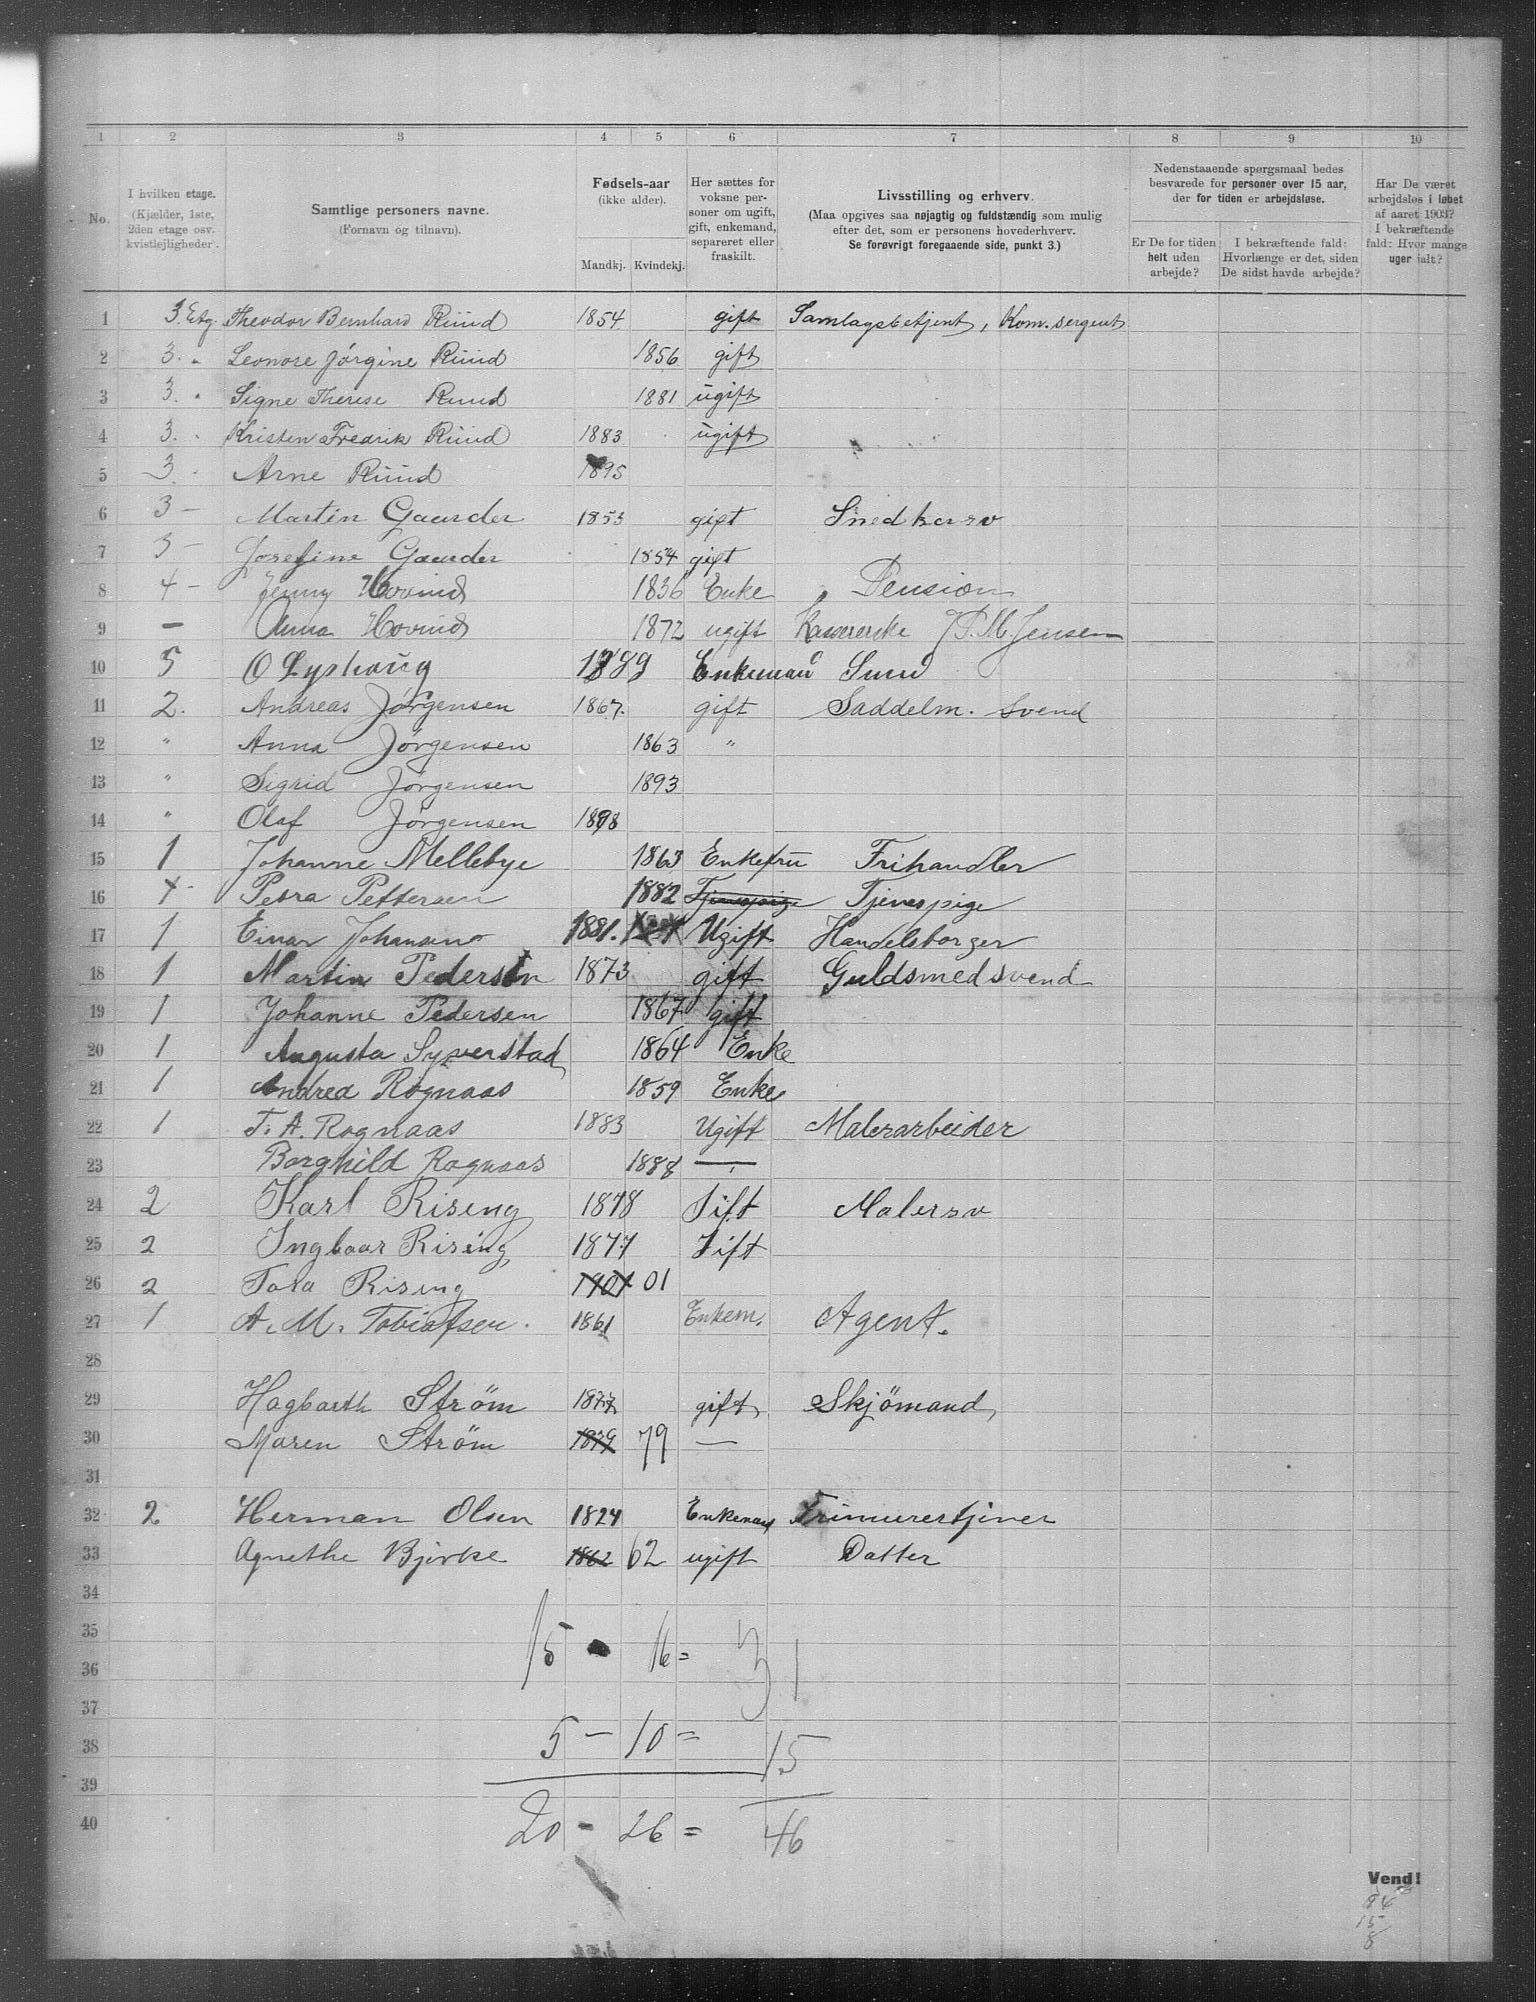 1 2 3 4 5 6 7 8 9 10
No. I hvilken etage. (Kjælder, 1ste, 2den etage osv. kvistlejligheder). Samtlige personers navne. (Fornavn og tilnavn). Fødsels-aar (ikke alder). Mandkj. Kvindekj. Her sættes for voksne personer om ugift, gift, enkemand, separeret eller fraskilt. Livsstilling og erhverv. (Maa opgives saa nøjagtig og fuldstændig som mulig efter det, som er personens hovederhverv. Se forøvrigt foregaaende side, punkt 3.) Nedenstaaende spørgsmaal bedes besvarede for personer over 15 aar, der for tiden er arbejdsløse. Er De for tiden helt uden arbejde? I bekræftende fald: Hvorlænge er det, siden De sidst havde arbejde? Har De været arbejdsløs i løbet af aaret 1903? I bekræftende fald: Hvor mange uger ialt?
1 3. Etg. Theodor Bernhard Ruud 1854 gift Samlagsbetjent, Kom. sergent
2 3. " Leonore Jørgine Ruud 1856 gift
3 3. " Signe Therese Ruud 1881 ugift
4 3. " Kristen Fredrik Ruud 1883 ugift
5 3. Arne Ruud 1895
6 3 — Martin Gaarder 1853 gift Snedkersv
7 3 — Josefine Gaarder 1854 gift
8 4 — Jenny Hovind 1836 Enke Pension
9 — Anna Hovind 1872 ugift Kassererske P. M. Jensen
10 5 O Lyshaug Enkemand
11 2. Andreas Jørgensen 1867. gift Saddelm. svend
12 " Anna Jørgensen 1863 "
13 " Sigrid Jørgensen 1893
14 " Olaf Jørgensen 1898
15 1 Johanne Mellebye 1863 Enkefru Frihandler
16 Petra Pettersen 1882 Tjenespige Tjenespige
17 1 Einar Johansen 1881. Ugift Handelsborger
18 1 Martin Pedersen 1873 gift Guldsmedsvend
19 1 Johanne Pedersen 1867 gift
20 1 Augusta Syverstad 1864 Enke
21 1 Andrea Rognaas 1859 Enke
22 1 T. A. Rognaas 1883 Ugift Malerarbeider
23 Borghild Rognaas 1888 —"—
24 2 Karl Rising 1878 Gift Malersv
25 2 Ingboar Rising 1877 Gift
26 2 Tora Rising 1901 01
27 1 A. M. Tobiassen. 1861 Enkem. Agent.
28
29 Hagbarth Strøm 1877 gift Skjömand
30 Maren Strøm 1879 79 —
31
32 2 Herman Olsen 1824 Enkemand Frimurertjener
33 Agnethe Bjerke 1862 62 ugift Datter
34
35
15 - 16 = 31
36
37
5 — 10 = 15
38
39
20 - 26 = 46
40
Vend!
15
8